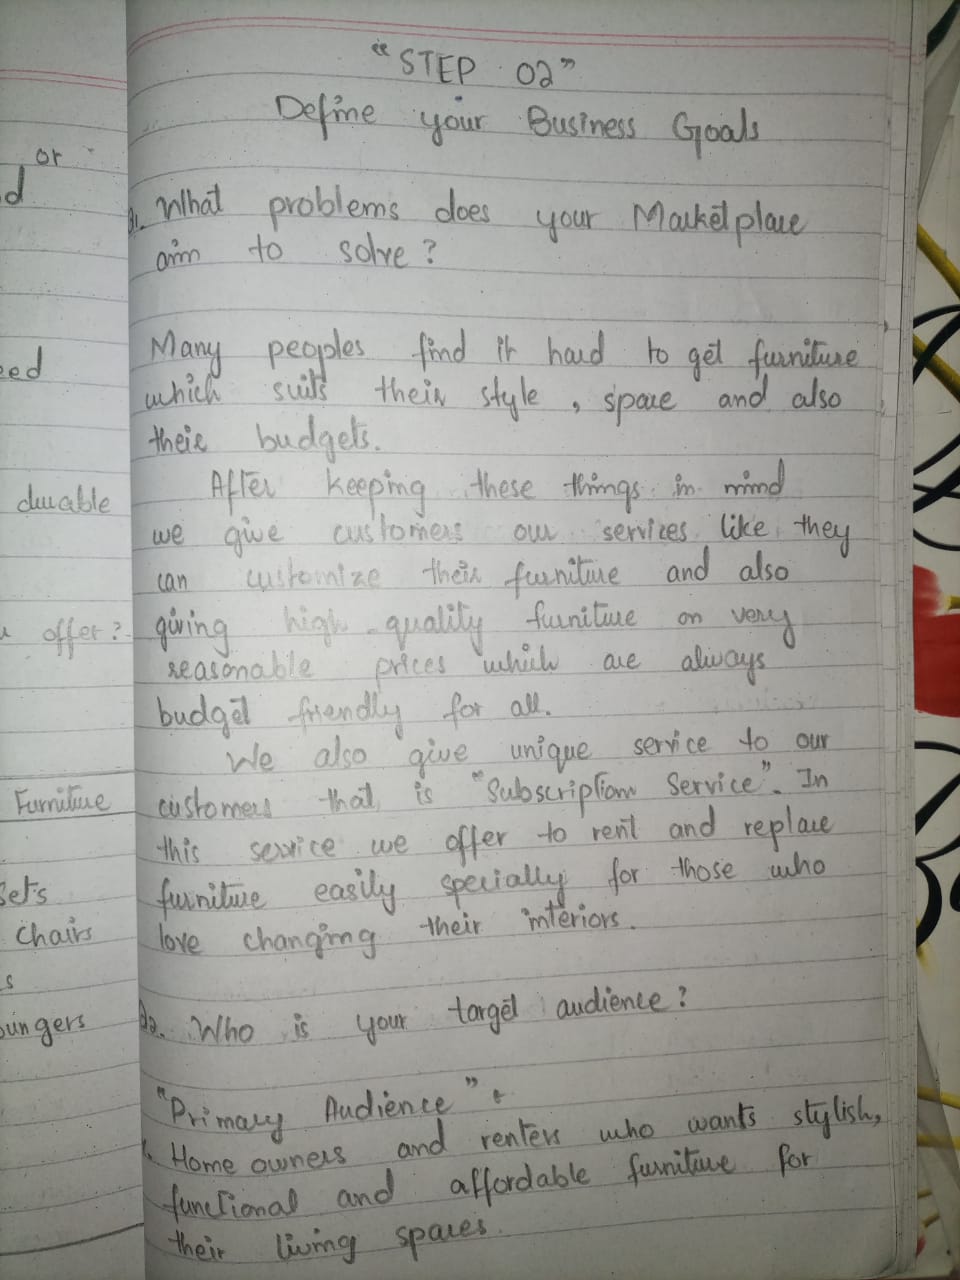 or
d
eed
durable
offer?
Furniture
sets
Chairs
s
oungers
"STEP 02"
Define your Business Goals
Q1. What problems does your Marketplace
aim to solve?
Many peoples find it hard to get furniture
which suits their style, space and also
their budgets.
After keeping these things in mind
we give customers our services like they
can customize their furniture and also
giving high-quality furniture on very
reasonable prices which are always
budget friendly for all.
We also give unique service to our
customers that is "Subscription Service". In
this service we offer to rent and replace
furniture easily specially for those who
love changing their interiors.
Q2. Who is your target audience?
"Primary Audience" :
Home owners and renters who wants stylish,
functional and affordable furniture for
their living spaces.